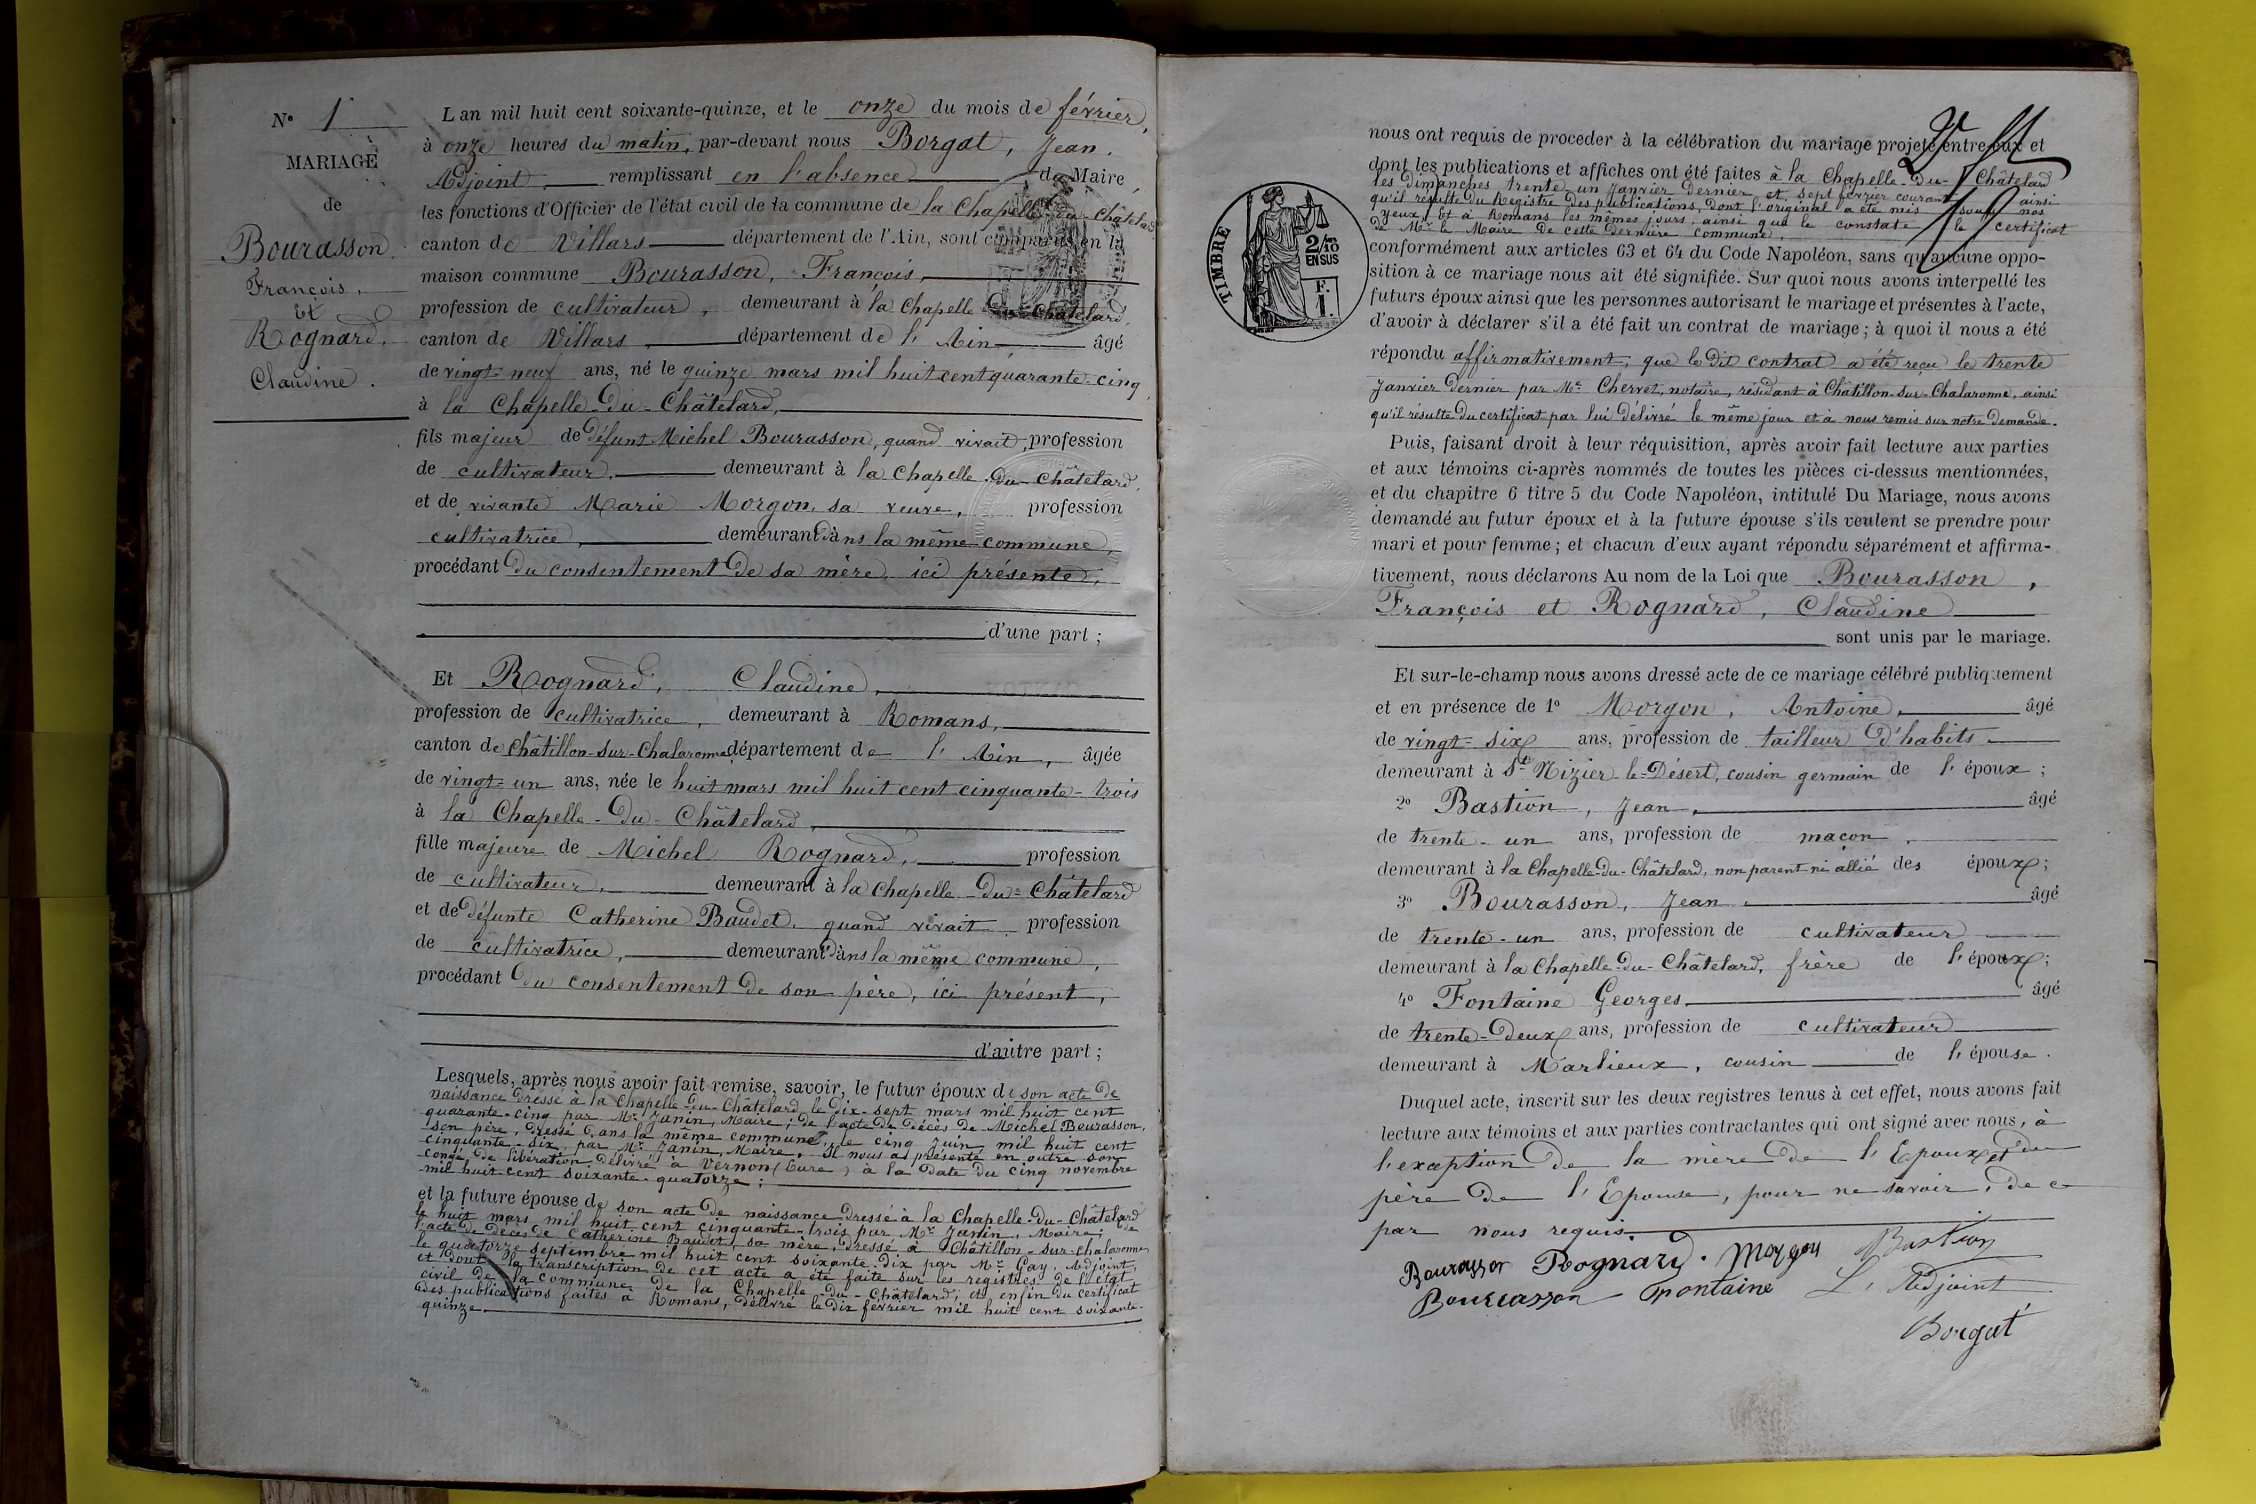 N° 1
MARIAGE
de
Bourasson
François,
Et
Rognard,
Claudine.
L'an mil huit cent soixante-quinze, et le onze du mois de février,
à onze heures du matin, par-devant nous Borgat, Jean.
Adjoint, remplissant en l'absence du Maire,
les fonctions d'Officier de l'état civil de la commune de la Chapelle-du-Châtelard
canton de Villars département de l'Ain, sont comparus en la
maison commune Bourasson, François,
profession de cultivateur, demeurant à la Chapelle-du-Châtelard,
canton de Villars, département de l'Ain, âgé
de vingt-neuf ans, né le quinze mars mil huit cent quarante-cinq
à la Chapelle-du-Châtelard,
fils majeur de défunt Michel Bourasson, quand vivait, profession
de cultivateur, demeurant à la Chapelle-du-Châtelard,
et de vivante Marie Morgon, sa veuve, profession
cultivatrice, demeurant dans la même commune,
procédant du consentement de sa mère, ici présente,
d'une part ;
Et Rognard, Claudine,
profession de cultivatrice, demeurant à Romans,
canton de Châtillon-sur-Chalaronne, département de l'Ain, âgée
de vingt-un ans, née le huit mars mil huit cent cinquante-trois
à la Chapelle-du-Châtelard,
fille majeure de Michel Rognard, profession
de cultivateur, demeurant à la Chapelle-du-Châtelard
et de défunte Catherine Baudet, quand vivait profession
de cultivatrice, demeurant dans la même commune,
procédant du consentement de son père, ici présent,
d'autre part ;
Lesquels, après nous avoir fait remise, savoir, le futur époux de son acte de
naissance dressé à la Chapelle-du-Châtelard le dix-sept mars mil huit cent
quarante-cinq par Mr Janin, Maire ; de l'acte de décès de Michel Bourasson,
son père, dressé dans la même commune, le cinq juin mil huit cent
cinquante-six par Mr Janin, Maire. Il nous a présenté en outre son
congé de libération délivré à Vernon (Eure) à la date du cinq novembre
mil huit cent soixante-quatorze ;
et la future épouse de son acte de naissance dressé à la Chapelle-du-Châtelard
le huit mars mil huit cent cinquante-trois par Mr Janin, Maire ; de
l'acte de décès de Catherine Baudet, sa mère, dressé à Châtillon-sur-Chalaronne
le quatorze septembre mil huit cent soixante-dix par Mr Gay, Adjoint,
et dont la transcription de cet acte a été faite sur les registres de l'état
civil de la commune de la Chapelle-du-Châtelard ; et enfin du certificat
des publications faites à Romans, délivré le dix février mil huit cent soixante-
quinze.
TIMBRE
2/10
EN SUS
F.
1.
nous ont requis de proceder à la célébration du mariage projeté entre eux et
dont les publications et affiches ont été faites à la Chapelle-du-Châtelard
les dimanches trente-un janvier dernier et sept février courant ainsi
qu'il résulte du Registre des publications, dont l'original a été mis sous nos
yeux, Et à Romans les mêmes jours ainsi que le constate le certificat
de Mr le Maire de cette dernière commune,
conformément aux articles 63 et 64 du Code Napoléon, sans qu'aucune oppo-
sition à ce mariage nous ait été signifiée. Sur quoi nous avons interpellé les
futurs époux ainsi que les personnes autorisant le mariage et présentes à l'acte,
d'avoir à déclarer s'il a été fait un contrat de mariage ; à quoi il nous a été
répondu affirmativement, que le dit contrat a été reçu le trente
janvier dernier par Me Chervet, notaire, résidant à Châtillon-sur-Chalaronne, ainsi
qu'il résulte du certificat par lui délivré le même jour et à nous remis sur notre demande.
Puis, faisant droit à leur réquisition, après avoir fait lecture aux parties
et aux témoins ci-après nommés de toutes les pièces ci-dessus mentionnées,
et du chapitre 6 titre 5 du Code Napoléon, intitulé Du Mariage, nous avons
demandé au futur époux et à la future épouse s'ils veulent se prendre pour
mari et pour femme ; et chacun d'eux ayant répondu séparément et affirma-
tivement, nous déclarons Au nom de la Loi que Bourasson,
François et Rognard, Claudine
sont unis par le mariage.
Et sur-le-champ nous avons dressé acte de ce mariage célébré publiquement
et en présence de 1° Morgon, Antoine, âgé
de vingt-six ans, profession de tailleur d'habits
demeurant à St Nizier-le-Désert, cousin germain de l'époux ;
2° Bastion, Jean, âgé
de trente-un ans, profession de maçon,
demeurant à la Chapelle-du-Châtelard, non parent ni allié des époux ;
3° Bourasson, Jean âgé
de trente-un ans, profession de cultivateur
demeurant à la Chapelle-du-Châtelard, frère de l'époux ;
4° Fontaine Georges âgé
de trente-deux ans, profession de cultivateur
demeurant à Marlieux, cousin de l'épouse.
Duquel acte, inscrit sur les deux registres tenus à cet effet, nous avons fait
lecture aux témoins et aux parties contractantes qui ont signé avec nous, à
l'exception de la mère de l'Epoux et du
père de l'Epouse, pour ne savoir, de ce
par nous requis.
Bourasson Rognard. Morgon Bastion
Bourrasson Fontaine L'Adjoint
Borgat